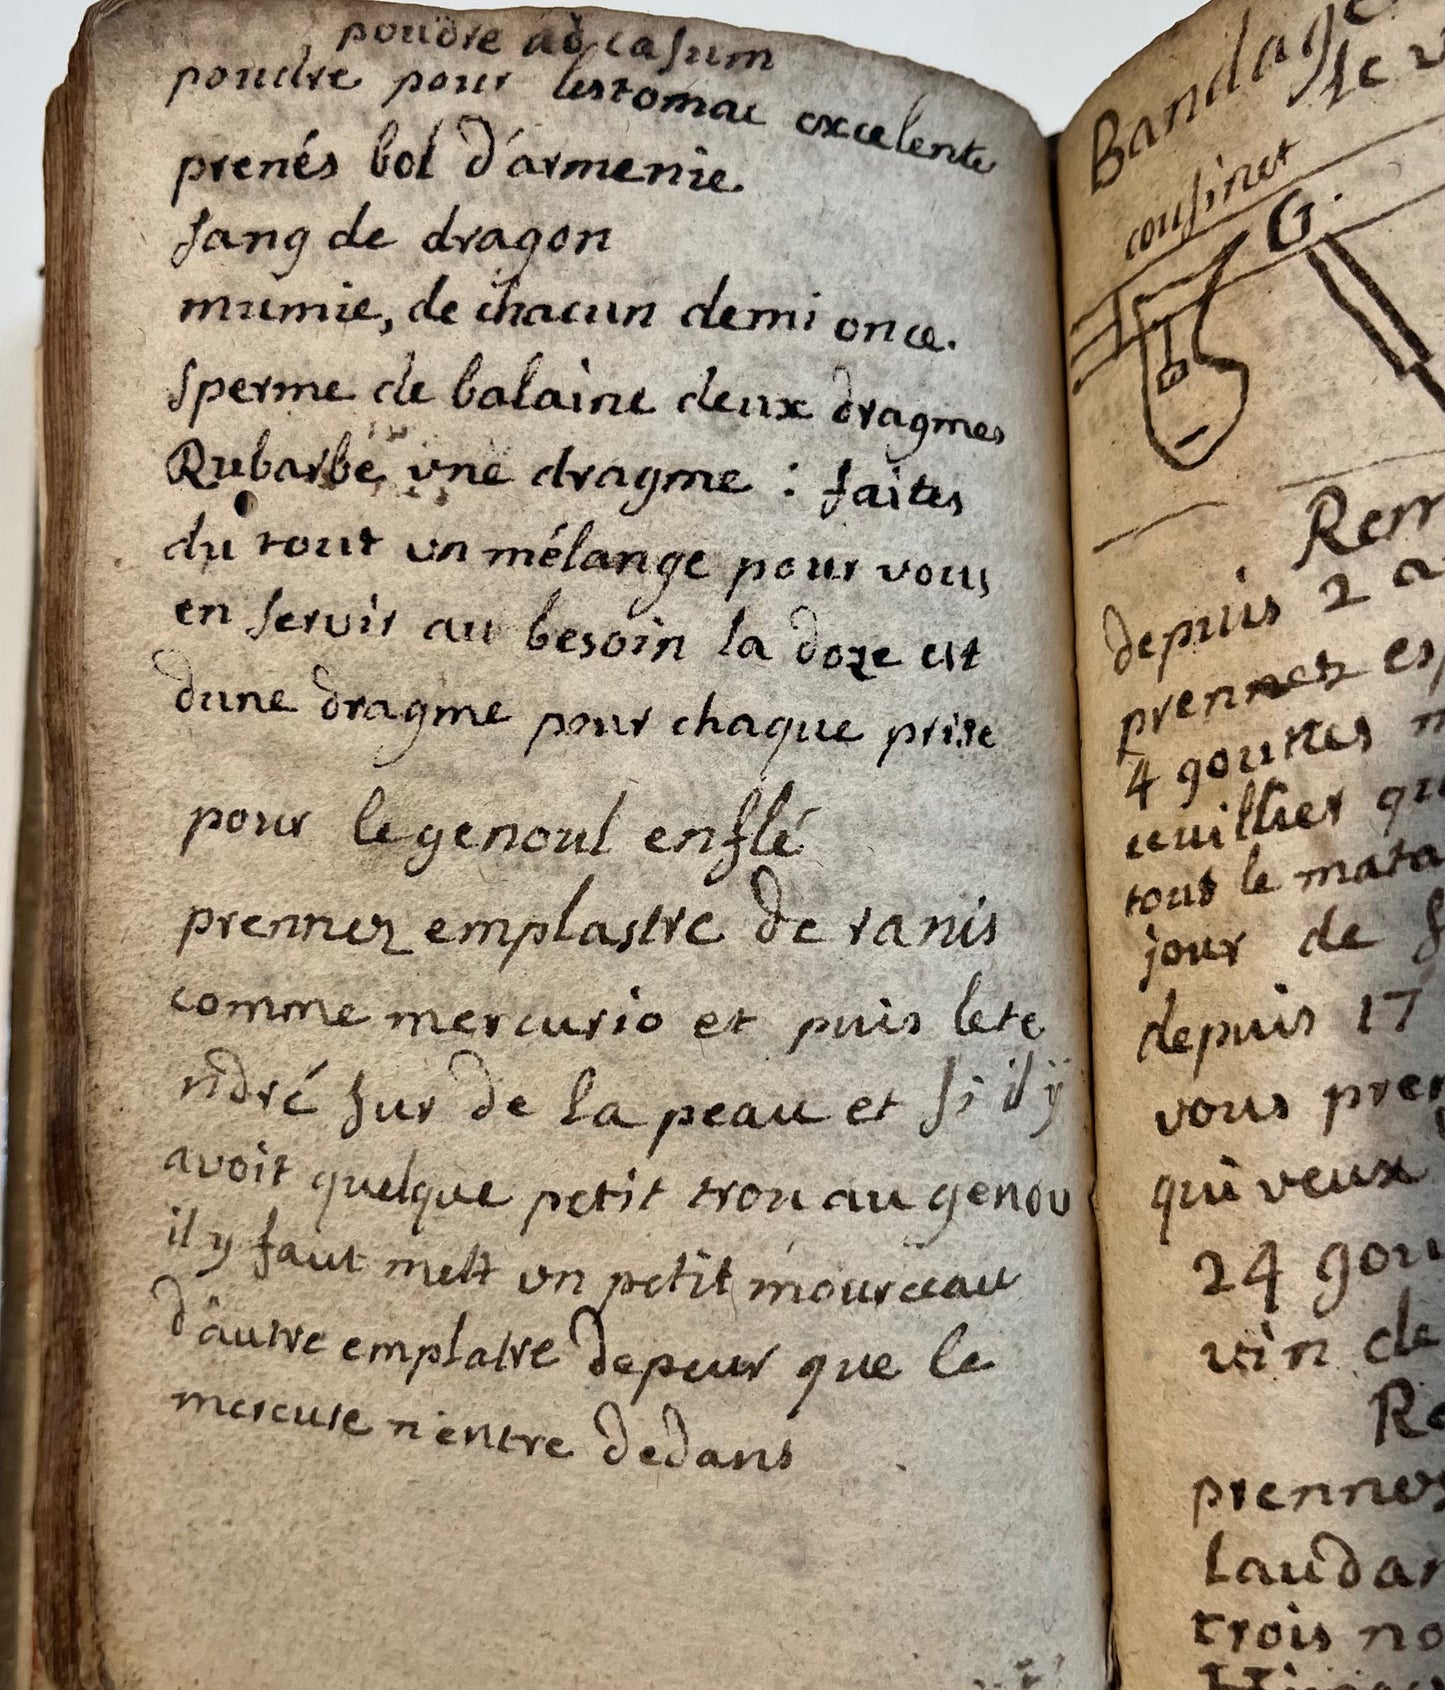 poudre ad casum
poudre pour lestomac excelente
prenés bol d'armenie
sang de dragon
mumie, de chacun demi once.
sperme de balaine deux dragmes
Rubarbe une dragme : faites
du tout un mélange pour vous
en servir au besoin la doze est
dune dragme pour chaque prise
pour le genoul enflé
prennez emplastre de ranis
comme mercurio et puis lete
ndré sur de la peau et si il y
avoit quelque petit trou au genou
il y faut mett un petit mourceau
d'autre emplatre depeur que le
mercure n'entre dedans
Bandage
le v
cousinet
G.
Rem
depuis 2 a
prennez esp
4 gouttes m
cuillier qu
tout le mata
jour de s
depuis 17
vous pren
qui veux
24 gou
vin de
Re
prennes
laudan
trois no